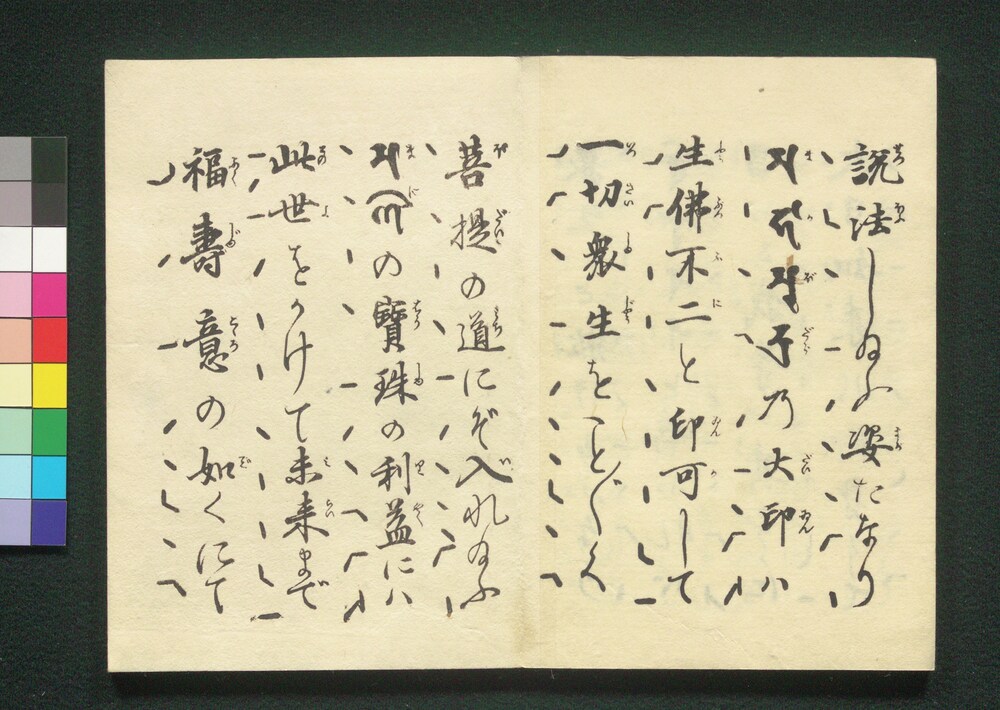 説法し給ふ姿たなり
𑖦𑖮𑖯𑖦𑖲𑖟𑖿𑖨𑖯乃大印ハ
生佛不二と印可して
一切衆生をこと〴〵く
菩提の道にぞ入れ給ふ
𑖦𑖜𑖰の寶珠の利益にハ
此世をかけて未来まで
福壽意の如くにて